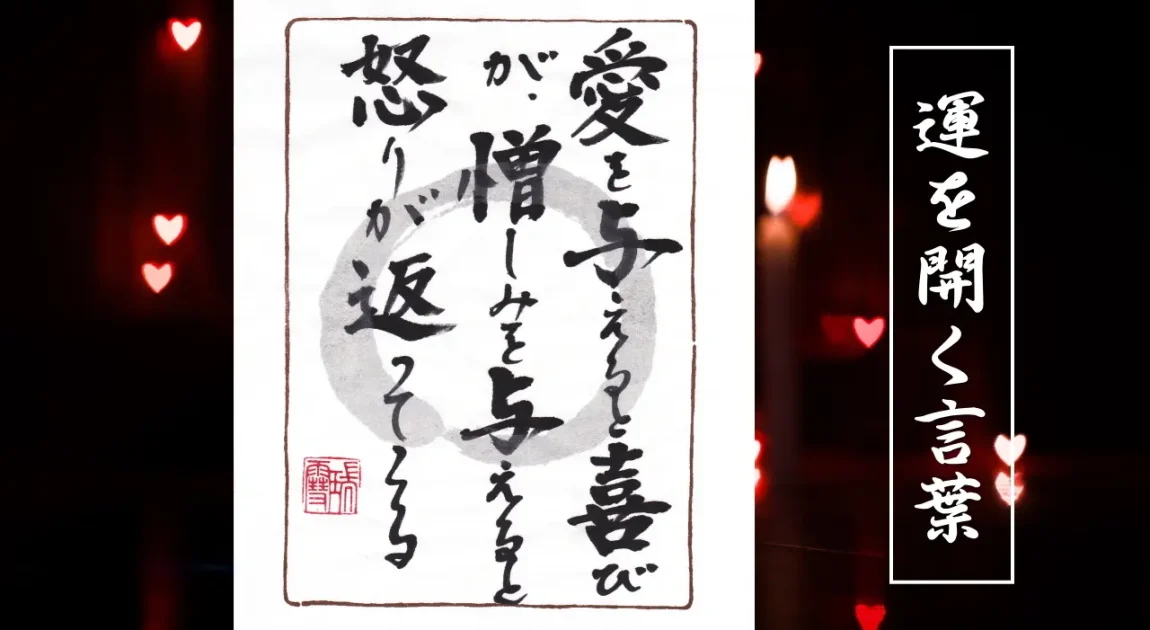 運を開く言葉
愛を与えると喜び
が、憎しみを与えると
怒りが返ってくる